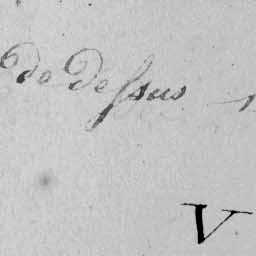 de dessus
V